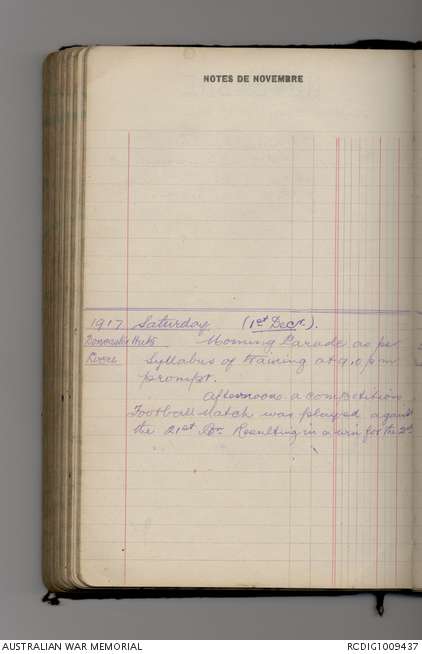 NOTES DE NOVEMBRE
1917 Saturday (1st Decr.).
Huts Morning Parade as per
Syllabus of training at 9.0 pm
prompt.
Afternoon a competition
Football Match was played against
the 21st Bn. Resulting in a win for the
AUSTRALIAN WAR MEMORIAL
RCDIG1009437